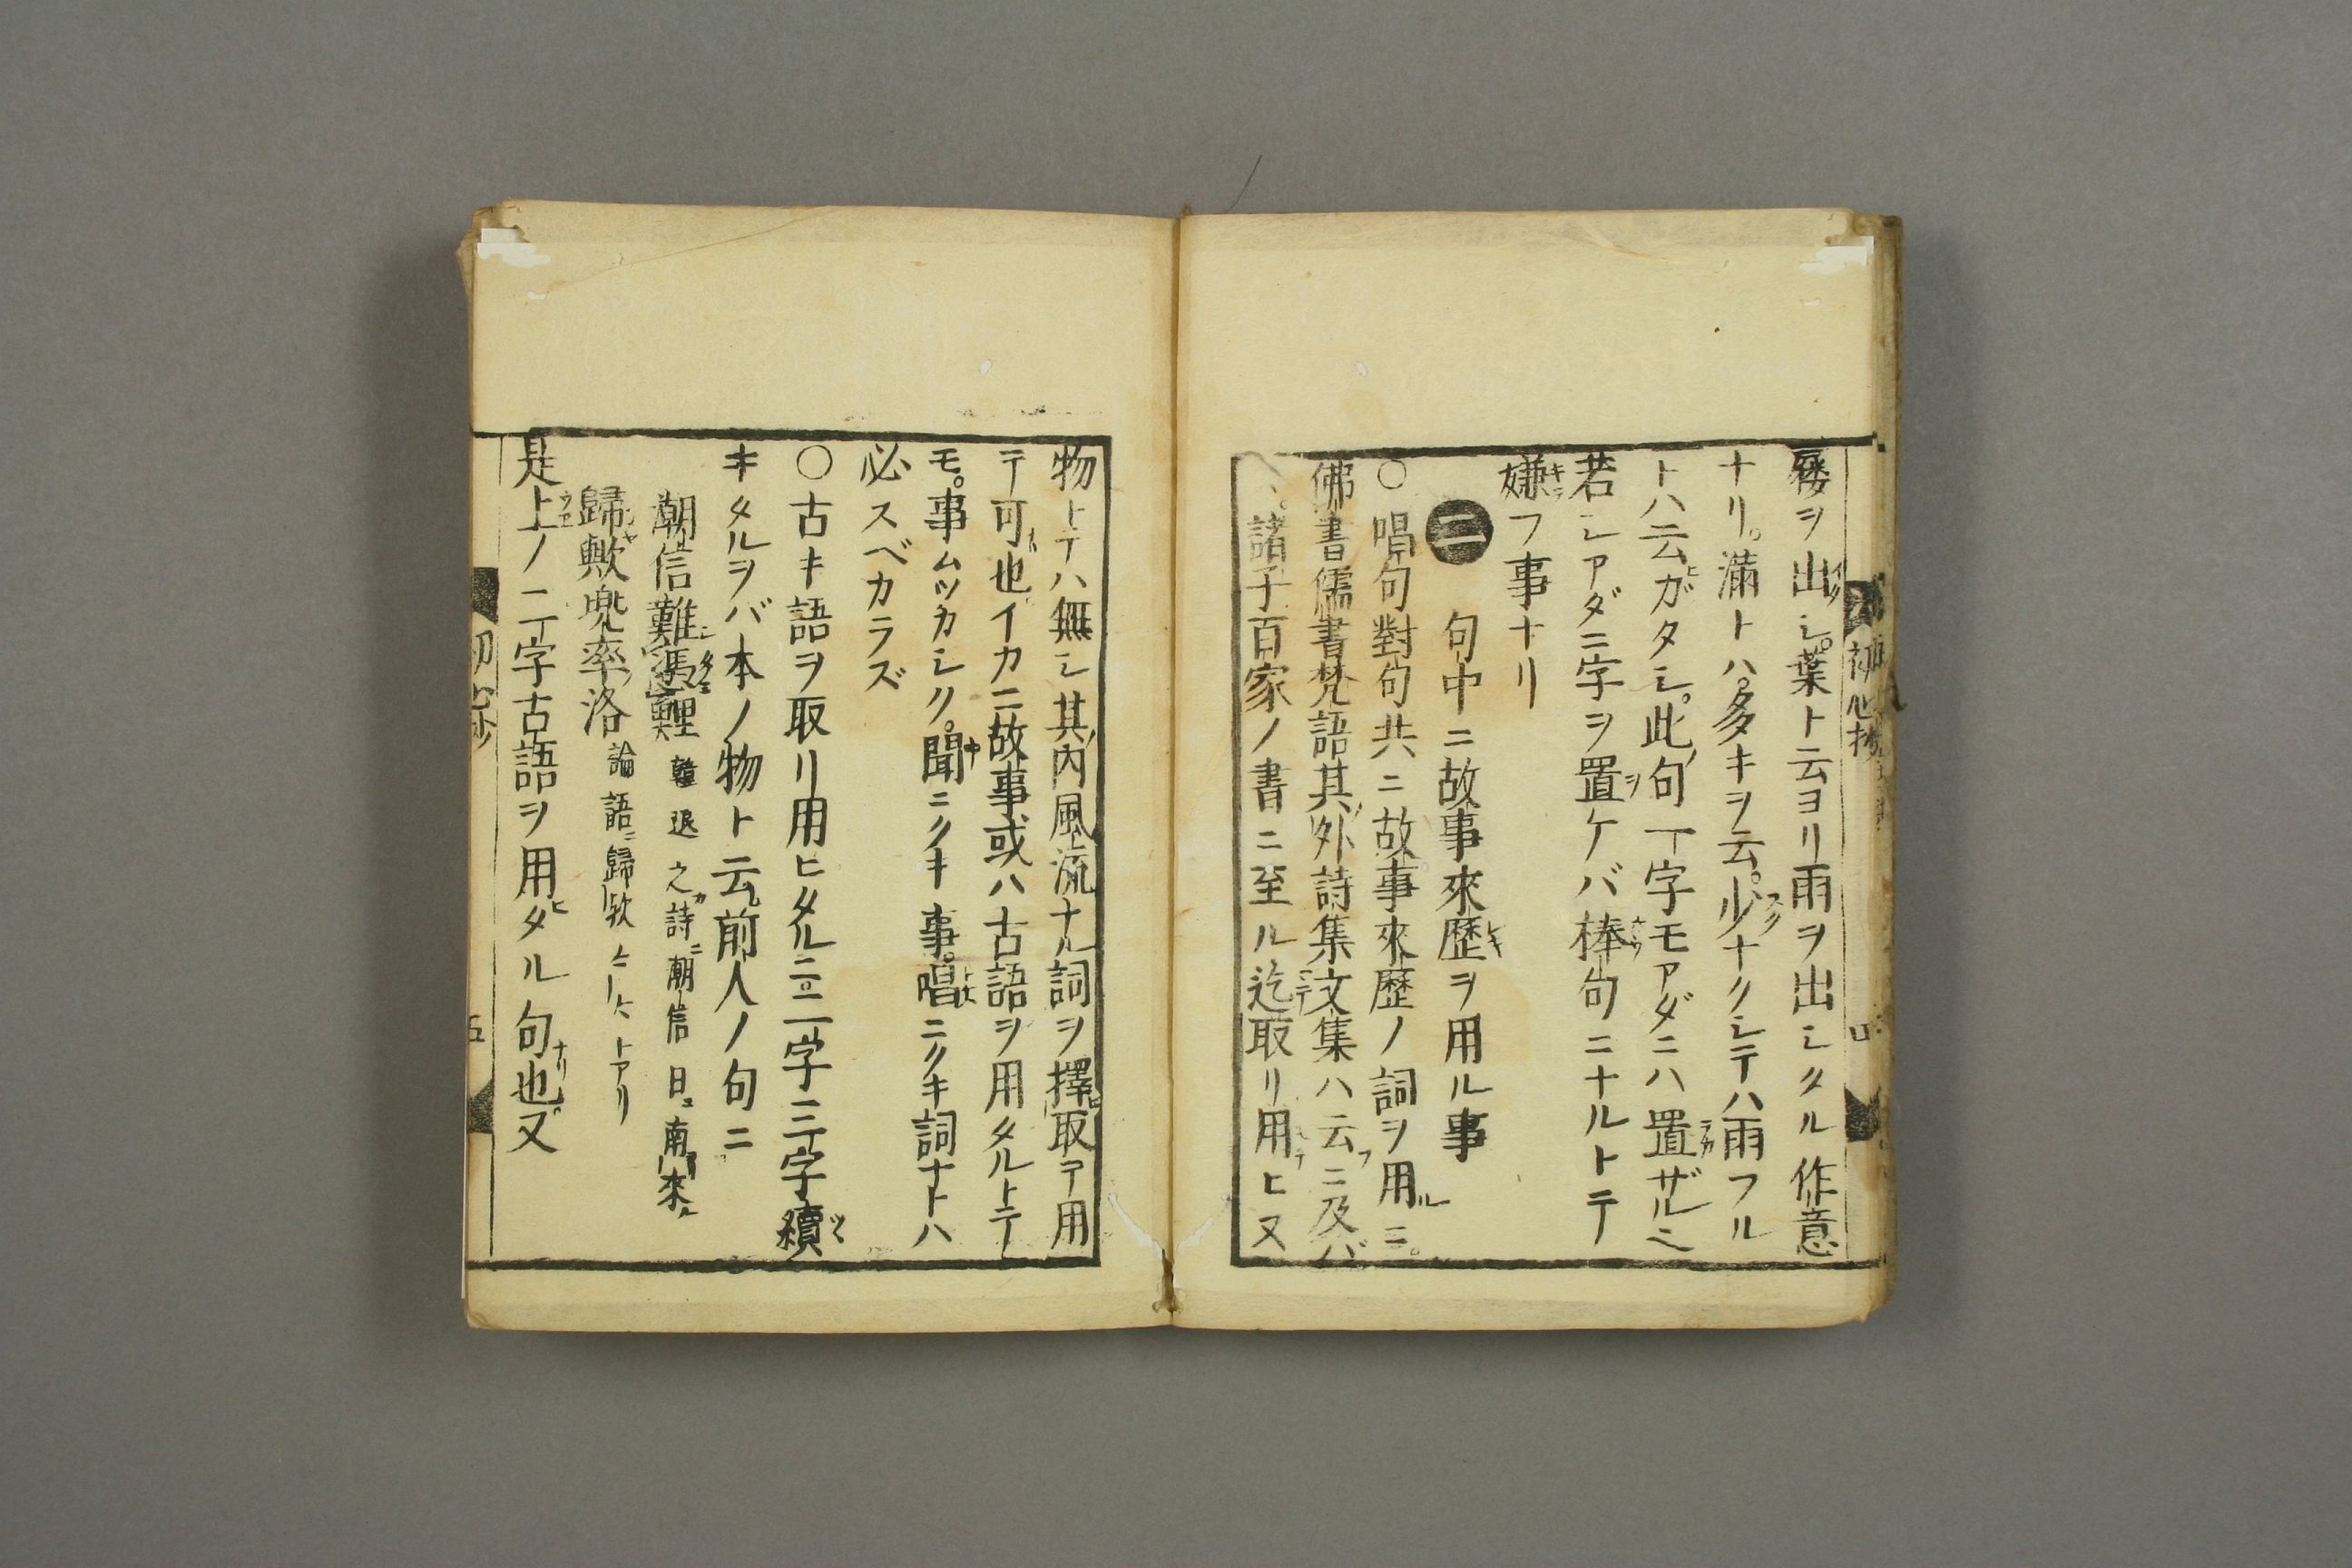 ヲ出シ。葉ト云ヨリ雨ヲ出シタル作意
ナリ。滿トハ。多キヲ云。少ナクシテハ雨フル
トハ云ガタシ。此句一字モアダニハ置ザルニ
若シアダニ字ヲ置ケバ棒句ニナルトテ
嫌フ事ナリ
二 句中ニ故事來歷ヲ用ル事
○唱句對句共ニ故事來歷ノ詞ヲ用ルニ。
佛書儒書梵語其外詩集文集ハ云ニ及バ
ヘ。諸子百家ノ書ニ至ル迄取リ用ヒ又
初心抄
物トテハ無シ其內風流ナル詞ヲ擇取テ用
テ可也イカニ故事或ハ古語ヲ用タルトテ
モ。事ムツカシク。聞ニクキ事。唱ニクキ詞ナトハ
必スベカラズ
○古キ語ヲ取リ用ヒタルニ二字三字續
キタルヲバ本ノ物ト云前人ノ句ニ
潮信難馮鯉 韓退之詩ニ潮信日南來ル
歸歟兜率洛 論語ニ歸歟トアリ
是上ノ二字古語ヲ用タル句也又
初心抄
五